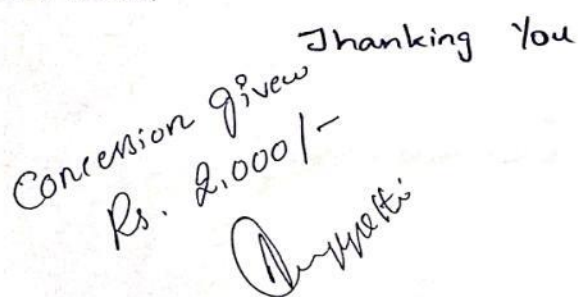 Thanking You
Concession given
Rs. 2,000/-